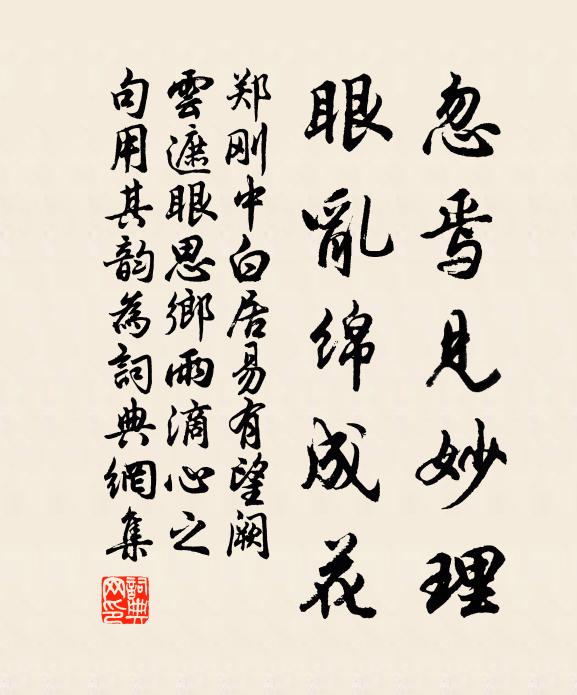 忽焉見妙理
眼亂绵成花
郑刚中白居易有望阙
雲遮眼思鄉雨滴心之
句用其韵為詞典網集
詞典网印